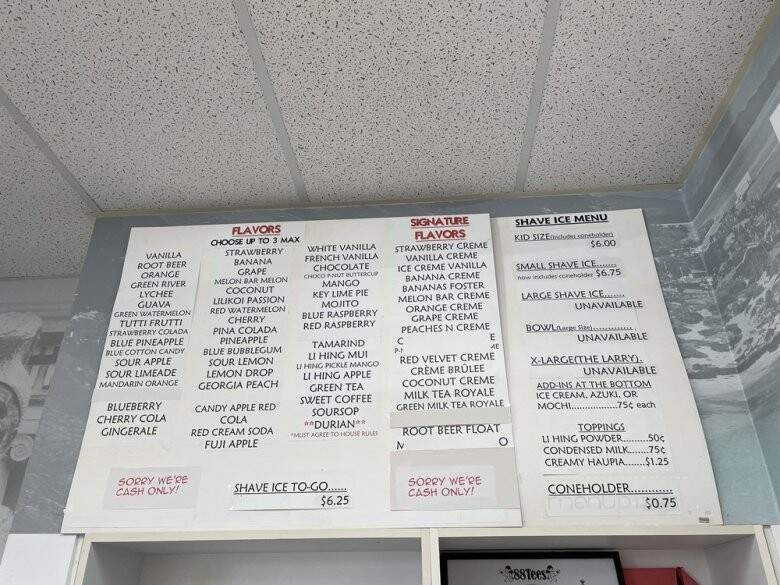 FLAVORS
CHOOSE UP TO 3 MAX
VANILLA
ROOT BEER
ORANGE
GREEN RIVER
LYCHEE
GUAVA
GREEN WATERMELON
TUTTI FRUTTI
STRAWBERRY COLADA
BLUE PINEAPPLE
BLUE COTTON CANDY
SOUR APPLE
SOUR LIMEADE
MANDARIN ORANGE
BLUEBERRY
CHERRY COLA
GINGERALE
STRAWBERRY
BANANA
GRAPE
MELON BAR MELON
COCONUT
LILIKOI PASSION
RED WATERMELON
CHERRY
PINA COLADA
PINEAPPLE
BLUE BUBBLEGUM
SOUR LEMON
LEMON DROP
GEORGIA PEACH
CANDY APPLE RED
COLA
RED CREAM SODA
FUJI APPLE
WHITE VANILLA
FRENCH VANILLA
CHOCOLATE
CHOCO P-NUT BUTTERCUP
MANGO
KEY LIME PIE
MOJITO
BLUE RASPBERRY
RED RASPBERRY
TAMARIND
LI HING MUI
LI HING PICKLE MANGO
LI HING APPLE
GREEN TEA
SWEET COFFEE
SOURSOP
**DURIAN**
*MUST AGREE TO HOUSE RULES
SORRY WE'RE
CASH ONLY!
SHAVE ICE TO-GO......
$6.25
SIGNATURE
FLAVORS
STRAWBERRY CREME
VANILLA CREME
ICE CREME VANILLA
BANANA CREME
BANANAS FOSTER
MELON BAR CREME
ORANGE CREME
GRAPE CREME
PEACHES N CREME
RED VELVET CREME
CRÈME BRÛLEE
COCONUT CREME
MILK TEA ROYALE
GREEN MILK TEA ROYALE
ROOT BEER FLOAT
SORRY WE'RE
CASH ONLY!
SHAVE ICE MENU
KID SIZE(includes coneholder)
$6.00
SMALL SHAVE ICE.......
now includes coneholder $6.75
LARGE SHAVE ICE........
UNAVAILABLE
BOWL(Large Size)..............
UNAVAILABLE
X-LARGE(THE LARRY).
UNAVAILABLE
ADD-INS AT THE BOTTOM
ICE CREAM, AZUKI, OR
MOCHI............75¢ each
TOPPINGS
LI HING POWDER.......50¢
CONDENSED MILK......75¢
CREAMY HAUPIA......$1.25
CONEHOLDER............
$0.75
88Tees